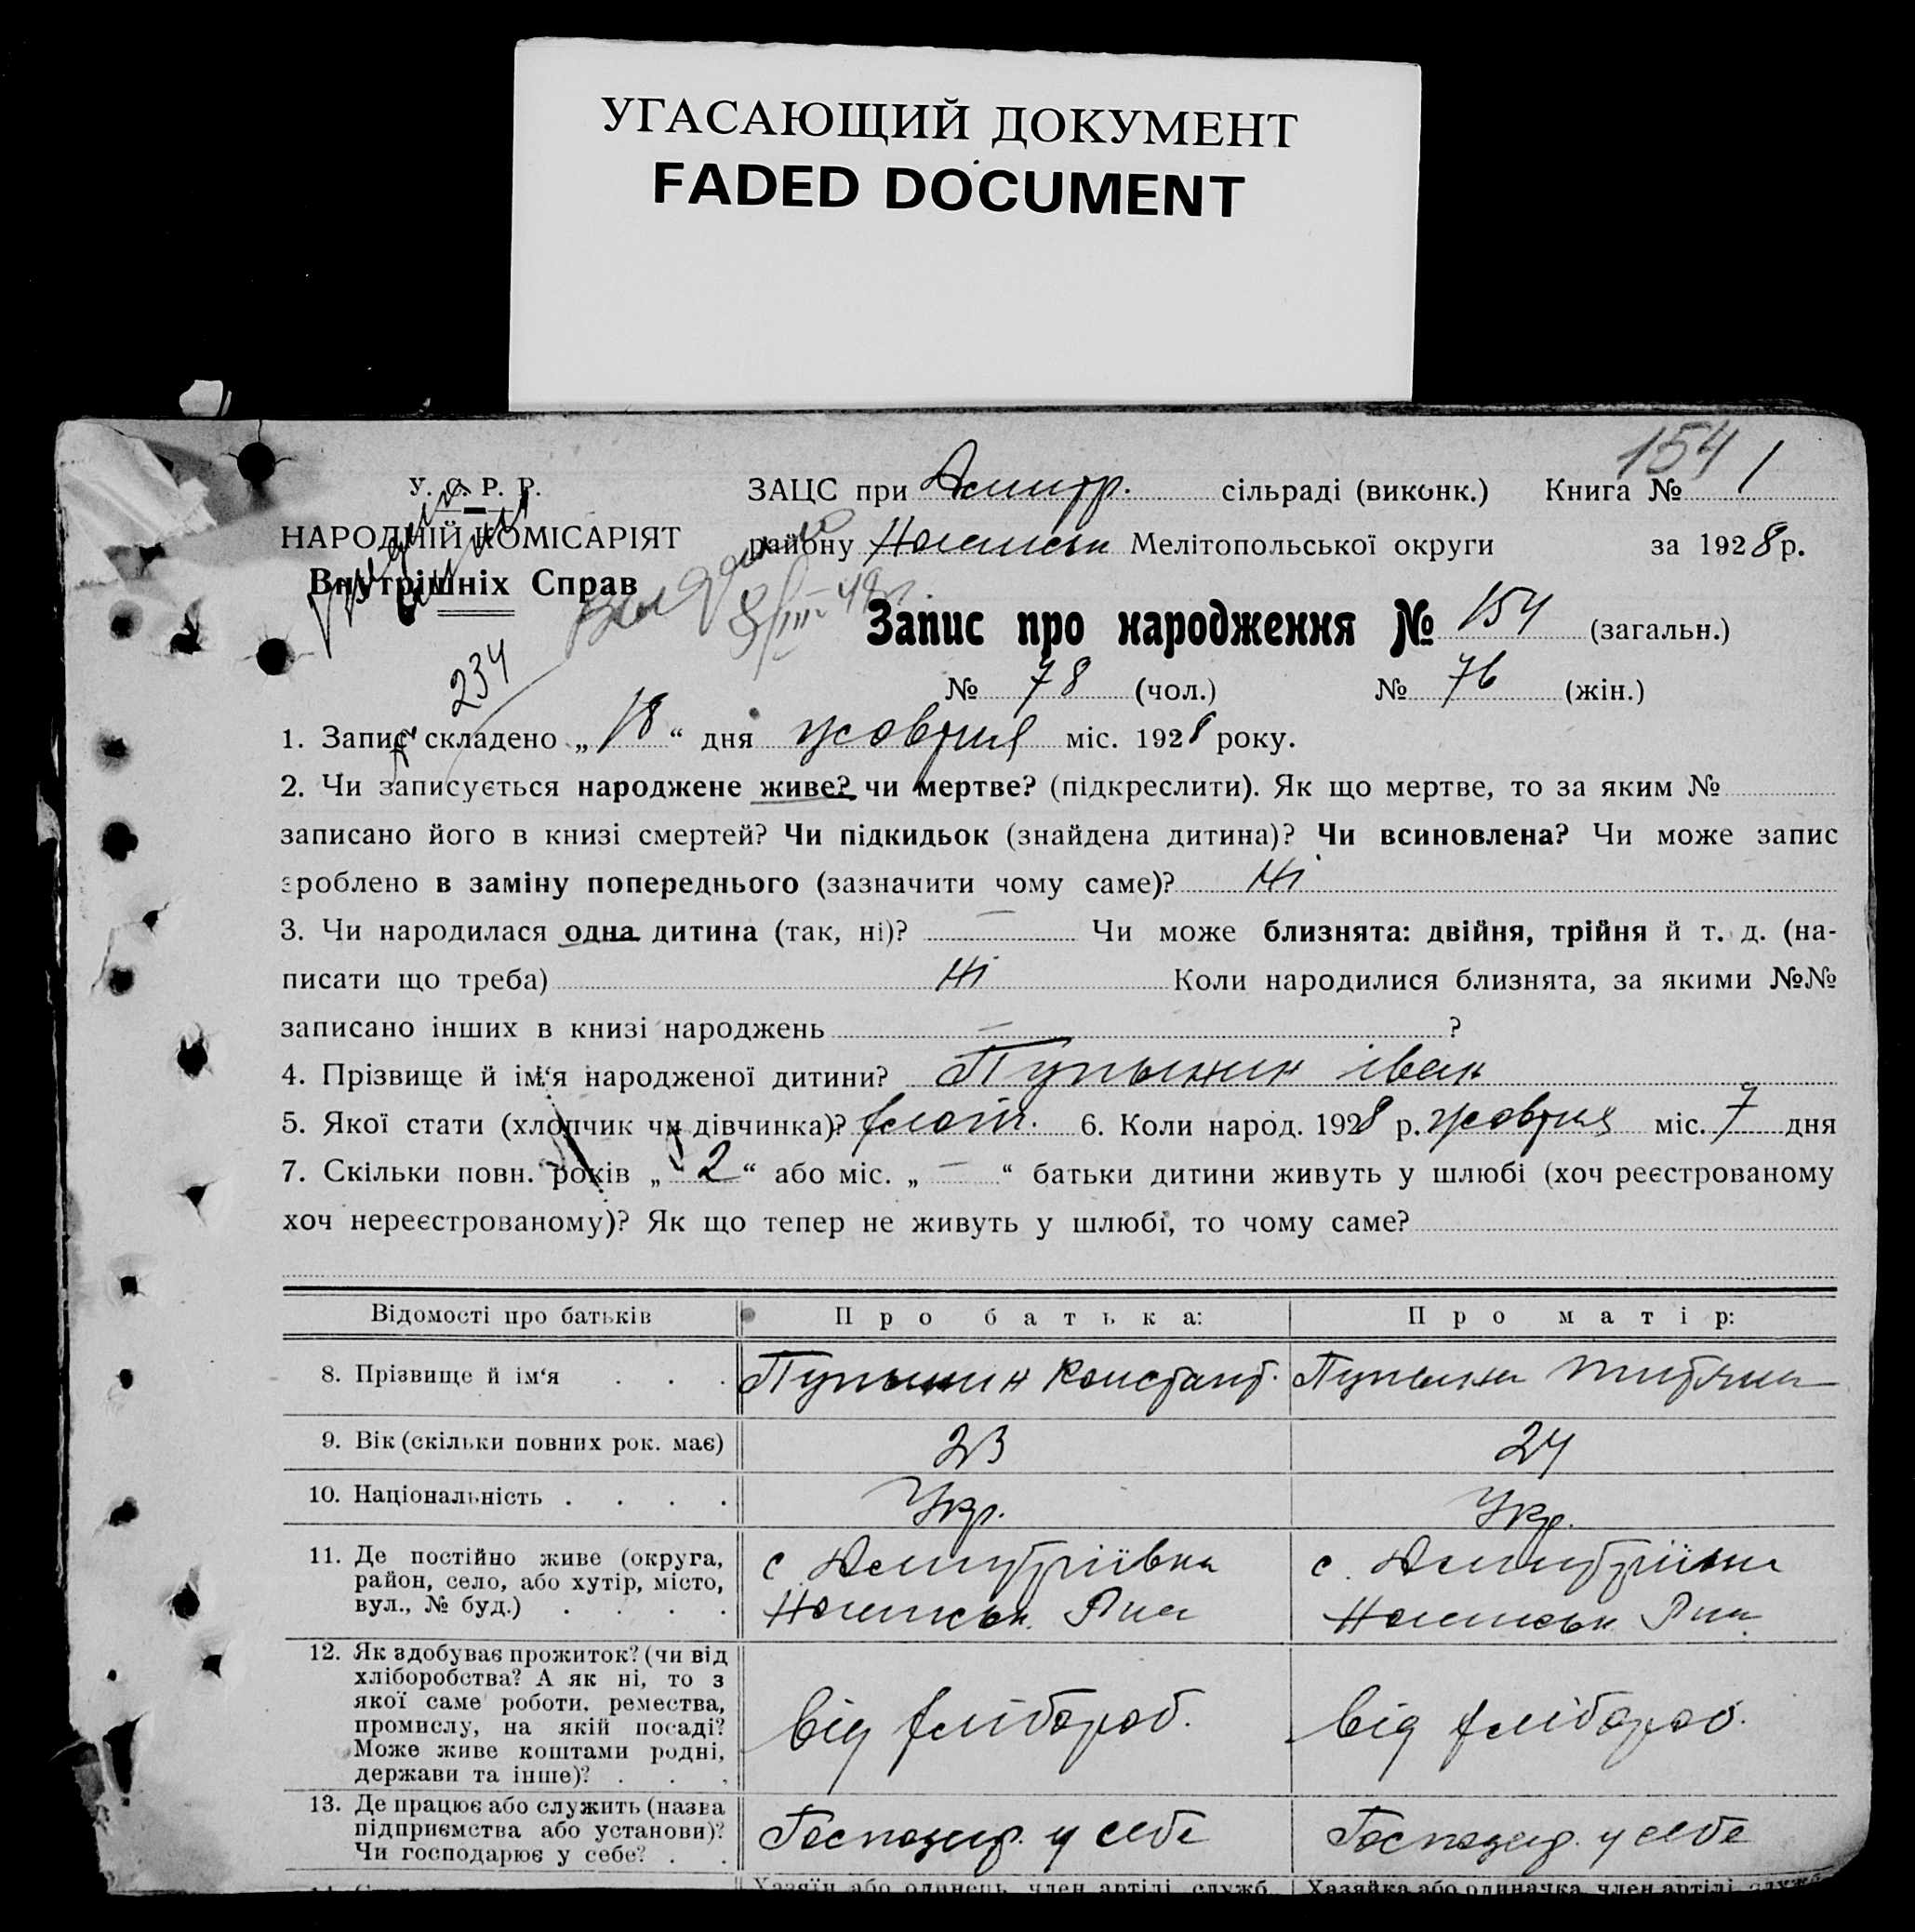 УГАСАЮЩИЙ ДОКУМЕНТ
FADED DOCUMENT
154
У. С. Р. Р.
НАРОДНІЙ КОМІСАРІЯТ
Внутрішніх Справ
ЗАЦС при Дмитр. сільраді (виконк.) Книга № 1
району Мелітопольської округи за 1928 р.
8/III 48 г.
234
Запис про народження № 154 (загальн.)
№ 78 (чол.) № 76 (жін.)
1. Запис складено „ 18 “ дня жовтня міс. 1928 року.
2. Чи записується народжене живе? чи мертве? (підкреслити). Як що мертве, то за яким №
записано його в книзі смертей? Чи підкидьок (знайдена дитина)? Чи всиновлена? Чи може запис
зроблено в заміну попереднього (зазначити чому саме)? Ні
3. Чи народилася одна дитина (так, ні)? — Чи може близнята: двійня, трійня й т. д. (на-
писати що треба) Ні Коли народилися близнята, за якими №№
записано інших в книзі народжень — ?
4. Прізвище й ім‘я народженої дитини? Пупынин Іван
5. Якої стати (хлопчик чи дівчинка)? хлоп. 6. Коли народ. 1928 р. жовтня міс. 7 дня
7. Скільки повн. років „ 2 “ або міс. „ — “ батьки дитини живуть у шлюбі (хоч реєстрованому
хоч нереєстрованому)? Як що тепер не живуть у шлюбі, то чому саме?
Відомості про батьків Про батька: Про матір:
8. Прізвище й ім‘я . . . Пупынин Констант. Пупынина Титяна
9. Вік (скільки повних рок. має) 23 24
10. Національність . . . . Укр. Укр.
11. Де постійно живе (округа,
район, село, або хутір, місто,
вул., № буд.) . . . .
с. Дмитріївка
Р-на
с. Дмитріївка
Р-на
12. Як здобуває прожиток? (чи від
хліборобства? А як ні, то з
якої саме роботи, ремества,
промислу, на якій посаді?
Може живе коштами родні,
держави та інше)? . . .
від хлібороб.
від хлібороб.
13. Де працює або служить (назва
підприємства або установи)?
Чи господарює у себе? . .
Господар. у себе
Господар. у себе
Хазяїн або одинець, член артілі, служб. Хазяйка або одиначка, член артілі, служб